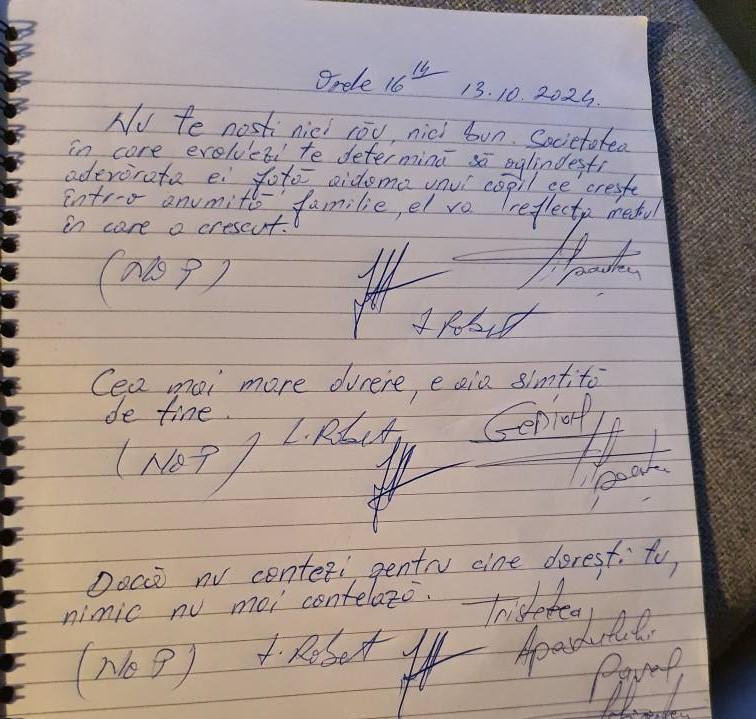 Orele 16 14 13.10.2024.
Nu te naști nici rău, nici bun. Societatea
în care evoluezi te determină să oglindești
adevărata ei față aidoma unui copil ce crește
într-o anumită familie, el va reflecta mediul
în care a crescut.
(NOP)
L. Robert
Cea mai mare durere, e aia simțită
de tine.
(NOP) L. Robert Genial
Dacă nu contezi pentru cine dorești tu,
nimic nu mai contează.
(NOP) L. Robert Tristețea
Apostolului
Pavel